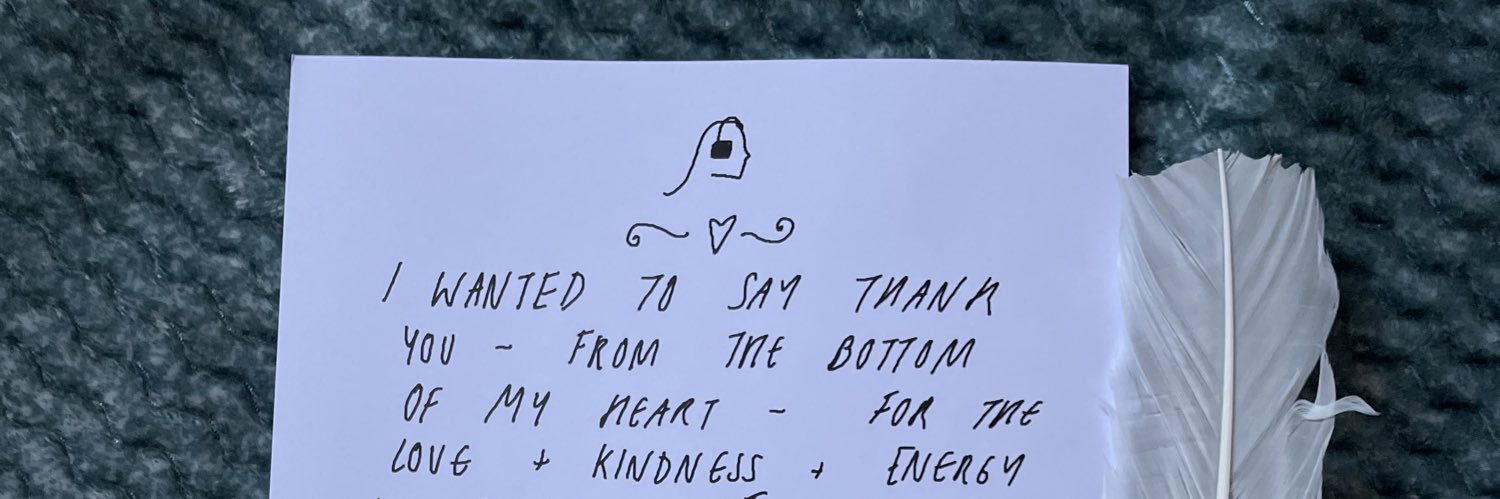 I WANTED TO SAY THANK
YOU - FROM THE BOTTOM
OF MY HEART - FOR THE
LOVE + KINDNESS + ENERGY